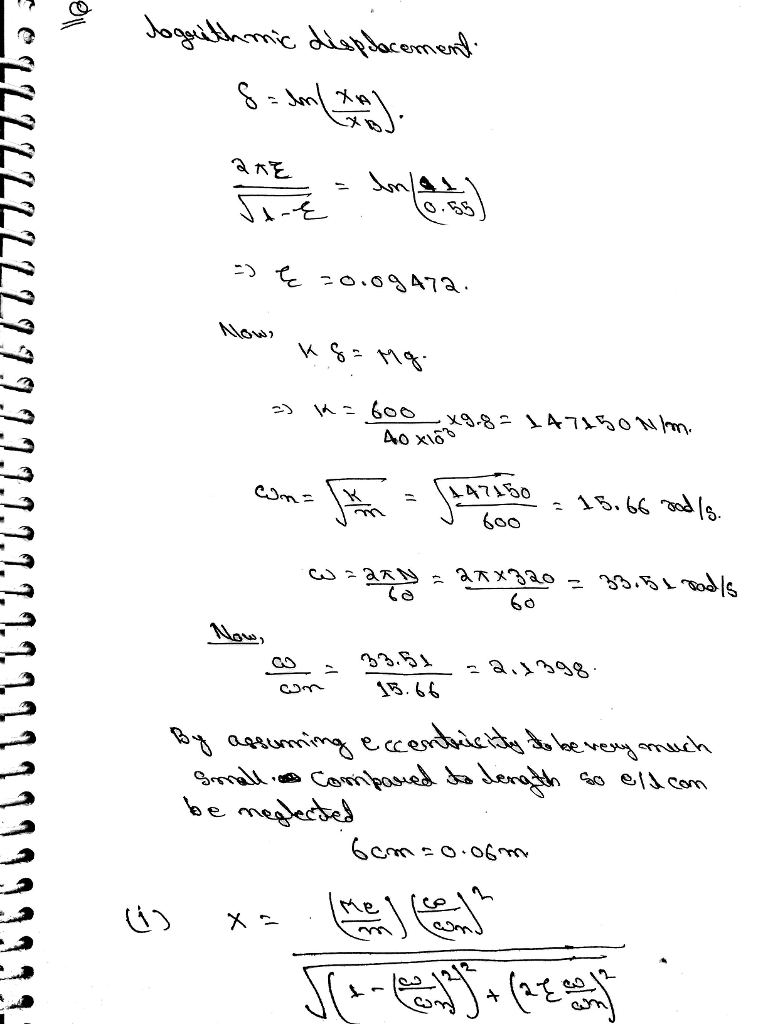 Q
logarithmic displacement.
δ = ln(xA/xB).
2πξ/√(1-ξ) = ln(1/0.55)
=> ξ = 0.09472.
Now,
Kδ = Mg.
=> K = 600/(40 x10^-3) x9.8 = 147150 N/m.
ωn = √(K/m) = √(147150/600) = 15.66 rad/s.
ω = 2πN/60 = 2π x 320/60 = 33.51 rad/s
Now,
ω/ωn = 33.51/15.66 = 2.1398.
By assuming eccentricity to be very much
small compared to length so e/l can
be neglected
6cm = 0.06m
(i) x = (Me/m)(ω/ωn)^2 / √((1-(ω/ωn)^2)^2 + (2ξ ω/ωn)^2) .